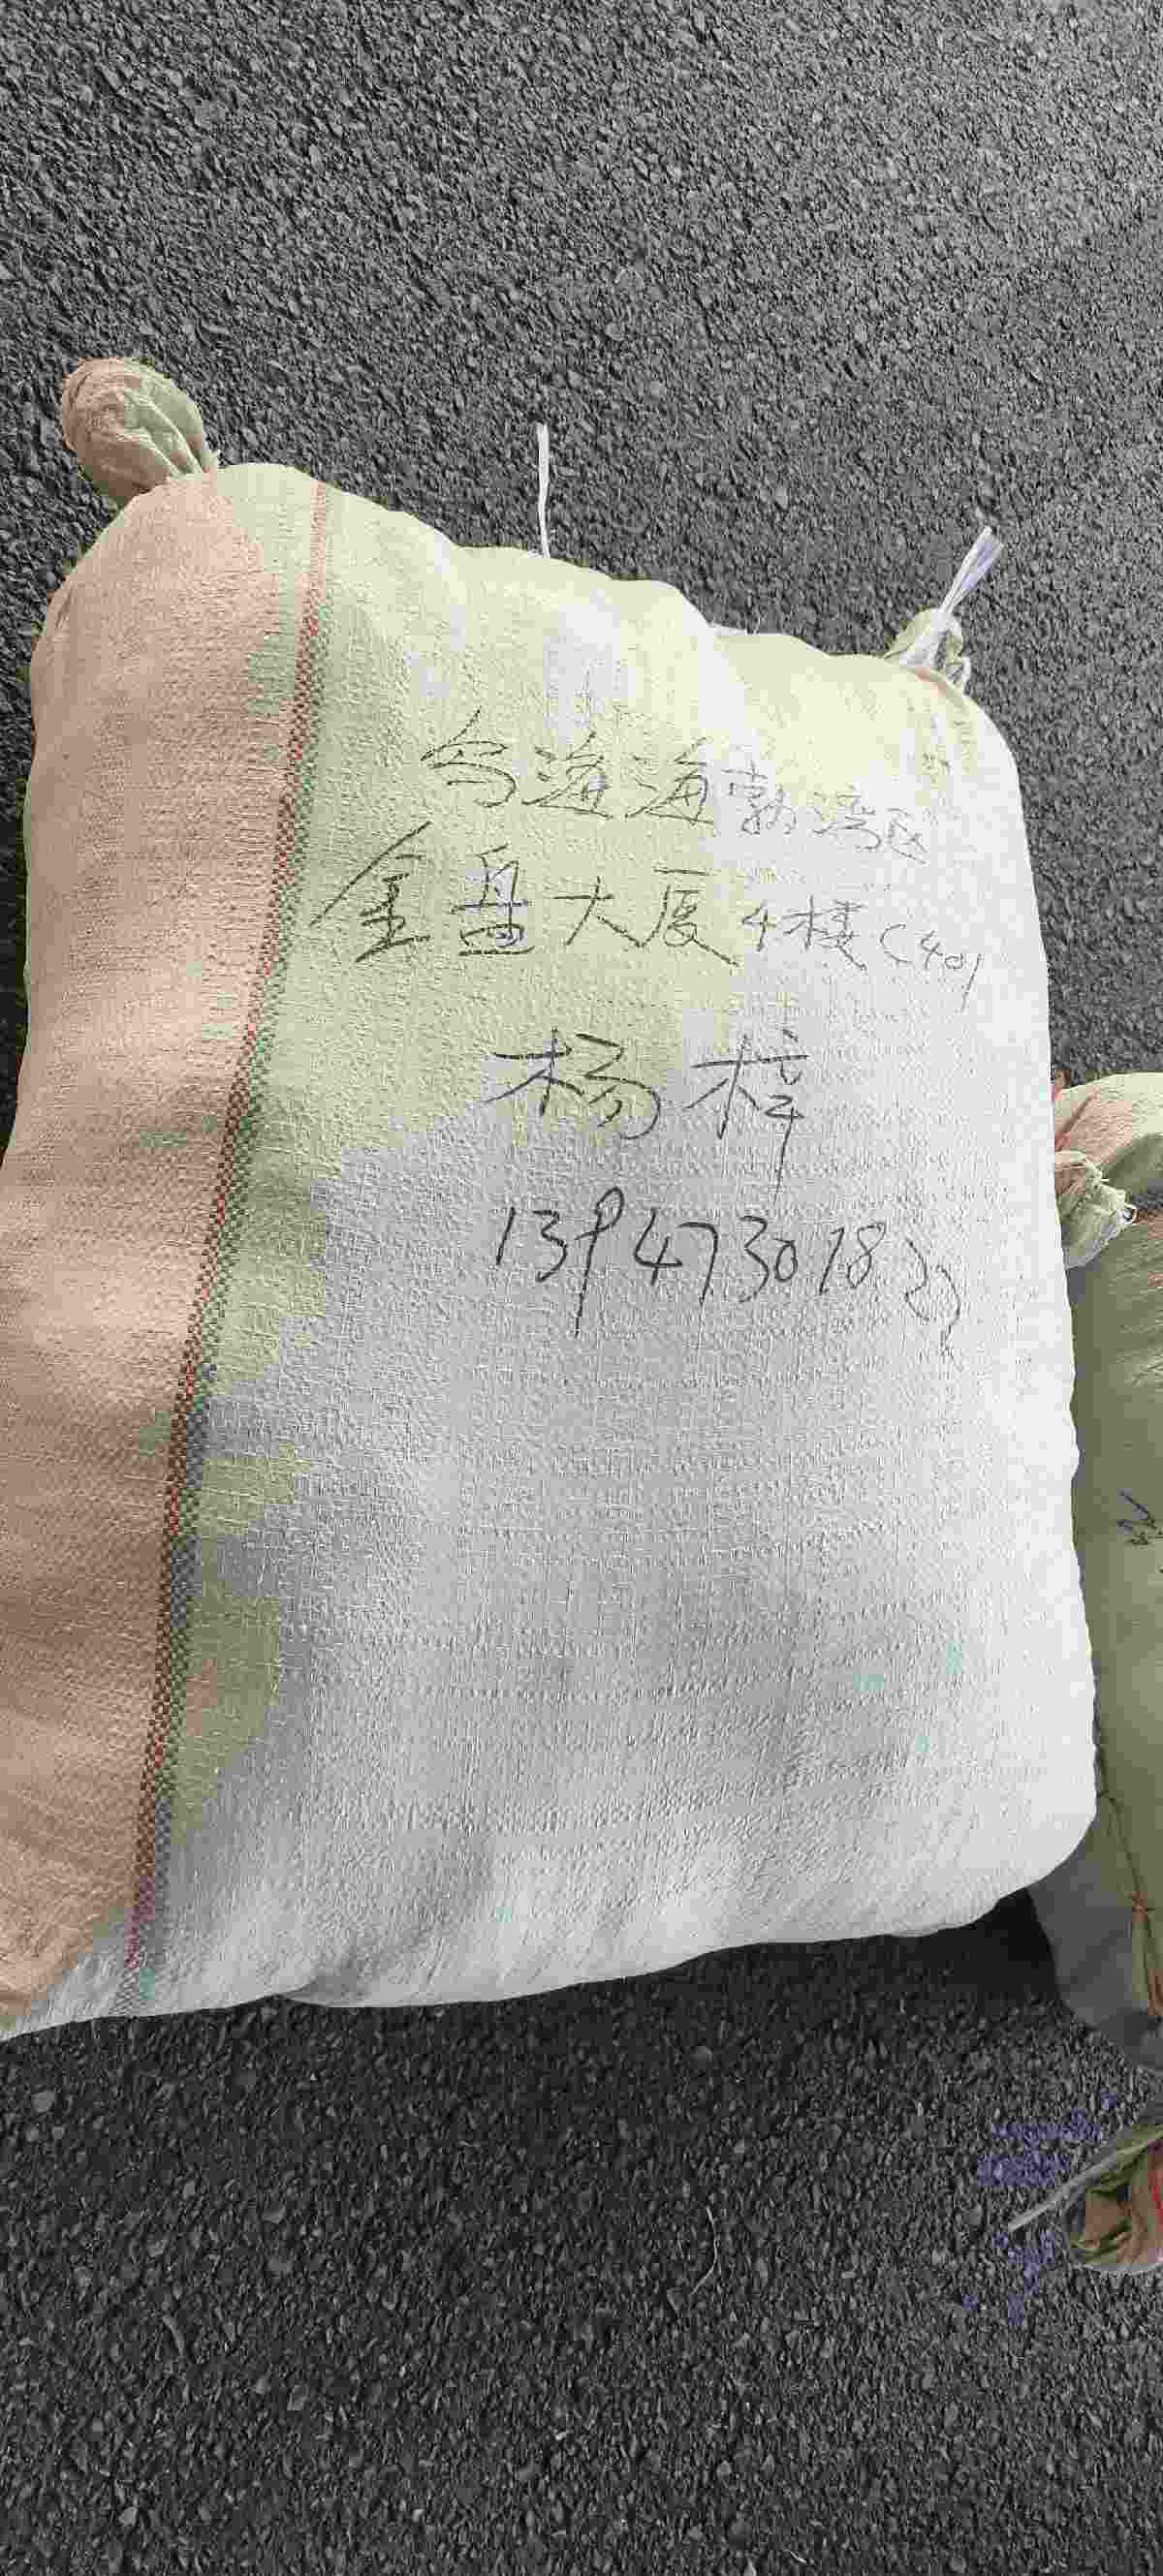 乌海海勃湾区
金盘大厦4楼(401
杨梓
13947301822